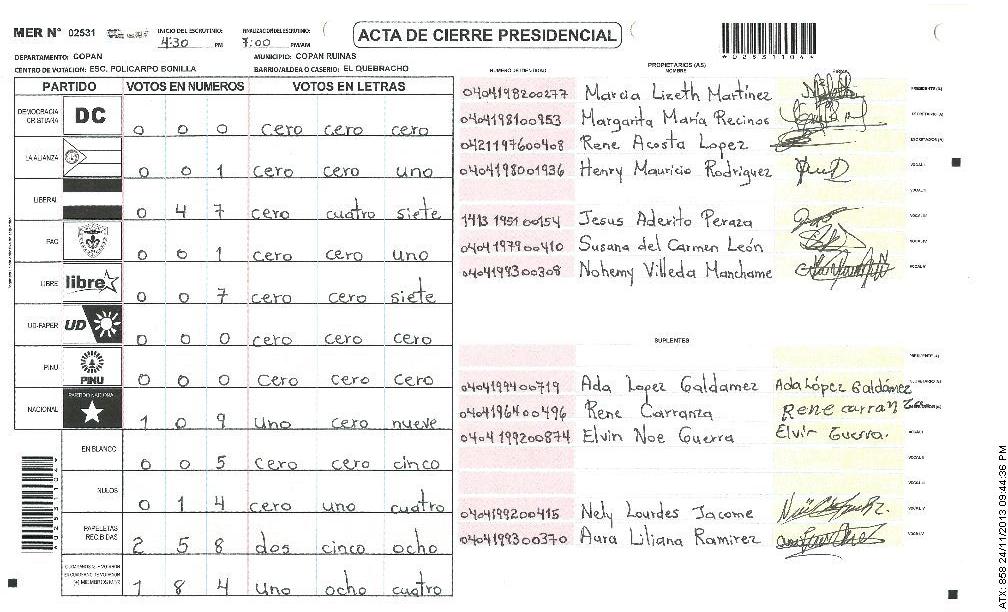 MER N° 02531 INICIO DEL ESCRUTINIO: 4:30 PM FINALIZACION DEL ESCRUTINIO: 7:00 PM/AM
ACTA DE CIERRE PRESIDENCIAL
DEPARTAMENTO: COPAN MUNICIPIO: COPAN RUINAS
CENTRO DE VOTACION: ESC. POLICARPO BONILLA BARRIO/ALDEA O CASERIO: EL QUEBRACHO
PARTIDO VOTOS EN NUMEROS VOTOS EN LETRAS
DEMOCRACIA CRISTIANA DC 0 0 0 cero cero cero
LA ALIANZA 0 0 1 cero cero uno
LIBERAL 0 4 7 cero cuatro siete
PAC 0 0 1 cero cero uno
LIBRE libre 0 0 7 cero cero siete
UD-FAPER UD 0 0 0 cero cero cero
PINU PINU 0 0 0 cero cero cero
NACIONAL PARTIDO NACIONAL 1 0 9 uno cero nueve
EN BLANCO 0 0 5 cero cero cinco
NULOS 0 1 4 cero uno cuatro
PAPELETAS RECIBIDAS 2 5 8 dos cinco ocho
1 8 4 uno ocho cuatro
*02531104*
NUMERO DE IDENTIDAD PROPIETARIOS (AS) NOMBRE FIRMA
0404198200277 Marcia Lizeth Martínez PRESIDENTE (A)
0404198100953 Margarita María Recinos SECRETARIO (A)
0421197600408 Rene Acosta Lopez ESCRUTADOR (A)
0404198001936 Henry Mauricio Rodriguez VOCAL I
VOCAL II
1413195100154 Jesus Aderito Peraza VOCAL III
0404197900410 Susana del Carmen León VOCAL IV
0404199300308 Nohemy Villeda Manchame VOCAL V
SUPLENTES
PRESIDENTE (A)
0404199400719 Ada Lopez Galdamez Ada López Galdámez SECRETARIO (A)
0404196400496 Rene Carranza Rene carranza
0404199200874 Elvin Noe Guerra Elvin Guerra. VOCAL I
VOCAL II
VOCAL III
0404199200415 Nely Lourdes Jacome VOCAL IV
0404199300370 Aura Liliana Ramirez VOCAL V
ATX: 858 24/11/2013 09:44:36 PM